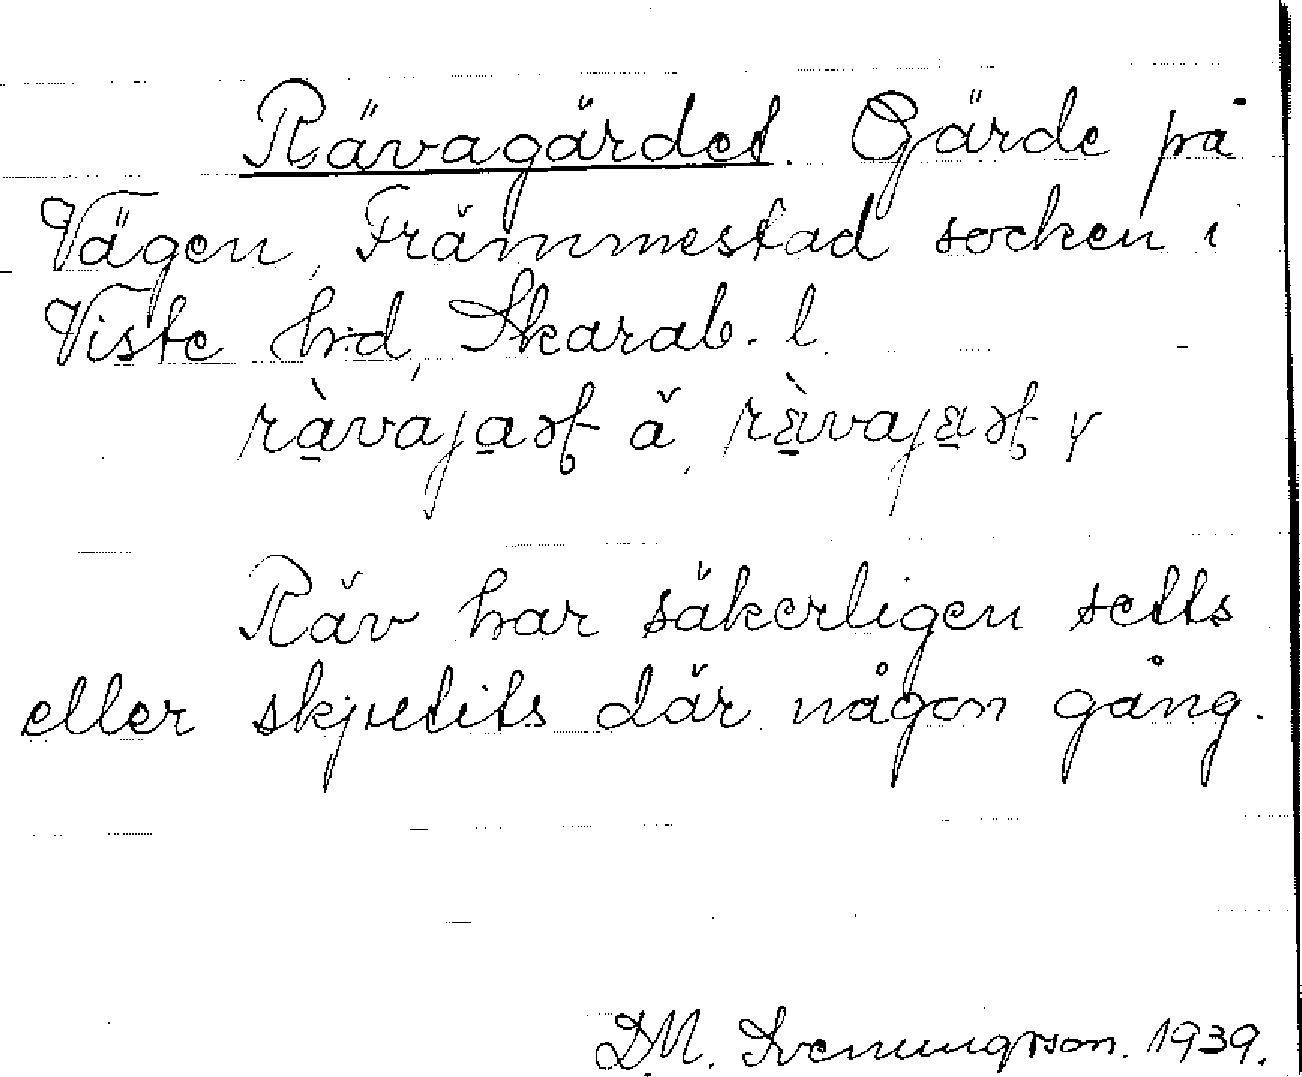 Rävagärdet. Gärde på
Vägen, Främmestad socken i
Viste hd, Skarab. l.
Räv har säkerligen setts
eller skjutits där någon gång.
D.M. Svenungsson. 1939.